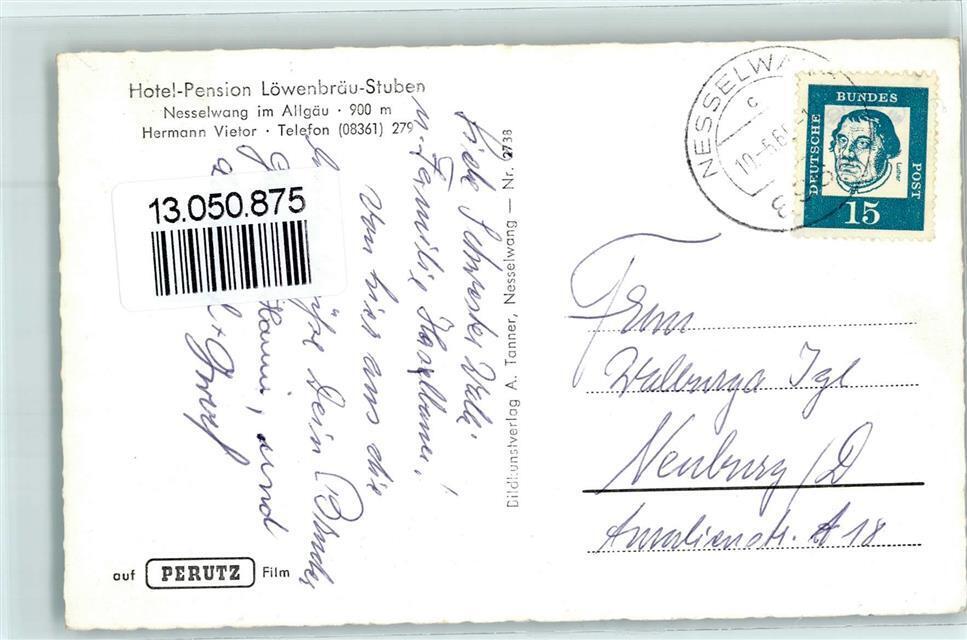 Hotel-Pension Löwenbräu-Stuben
Nesselwang im Allgäu · 900 m
Hermann Vietor · Telefon (08361) 279
13.050.875
Liebe Schwester Walli
u. Familie
Von hier aus die
Grüße Dein Bruder
Hanni, und
auf PERUTZ Film
Bildkunstverlag A. Tanner, Nesselwang — Nr. 2738
NESSELWANG
c
DEUTSCHE
BUNDES
POST
Luther
15
Frau
Walburga Igl
Neuburg/D
Amalienstr. A 18